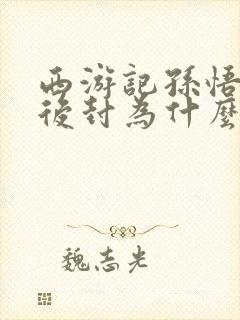 西游記孫悟
後封為什麼
魏志光